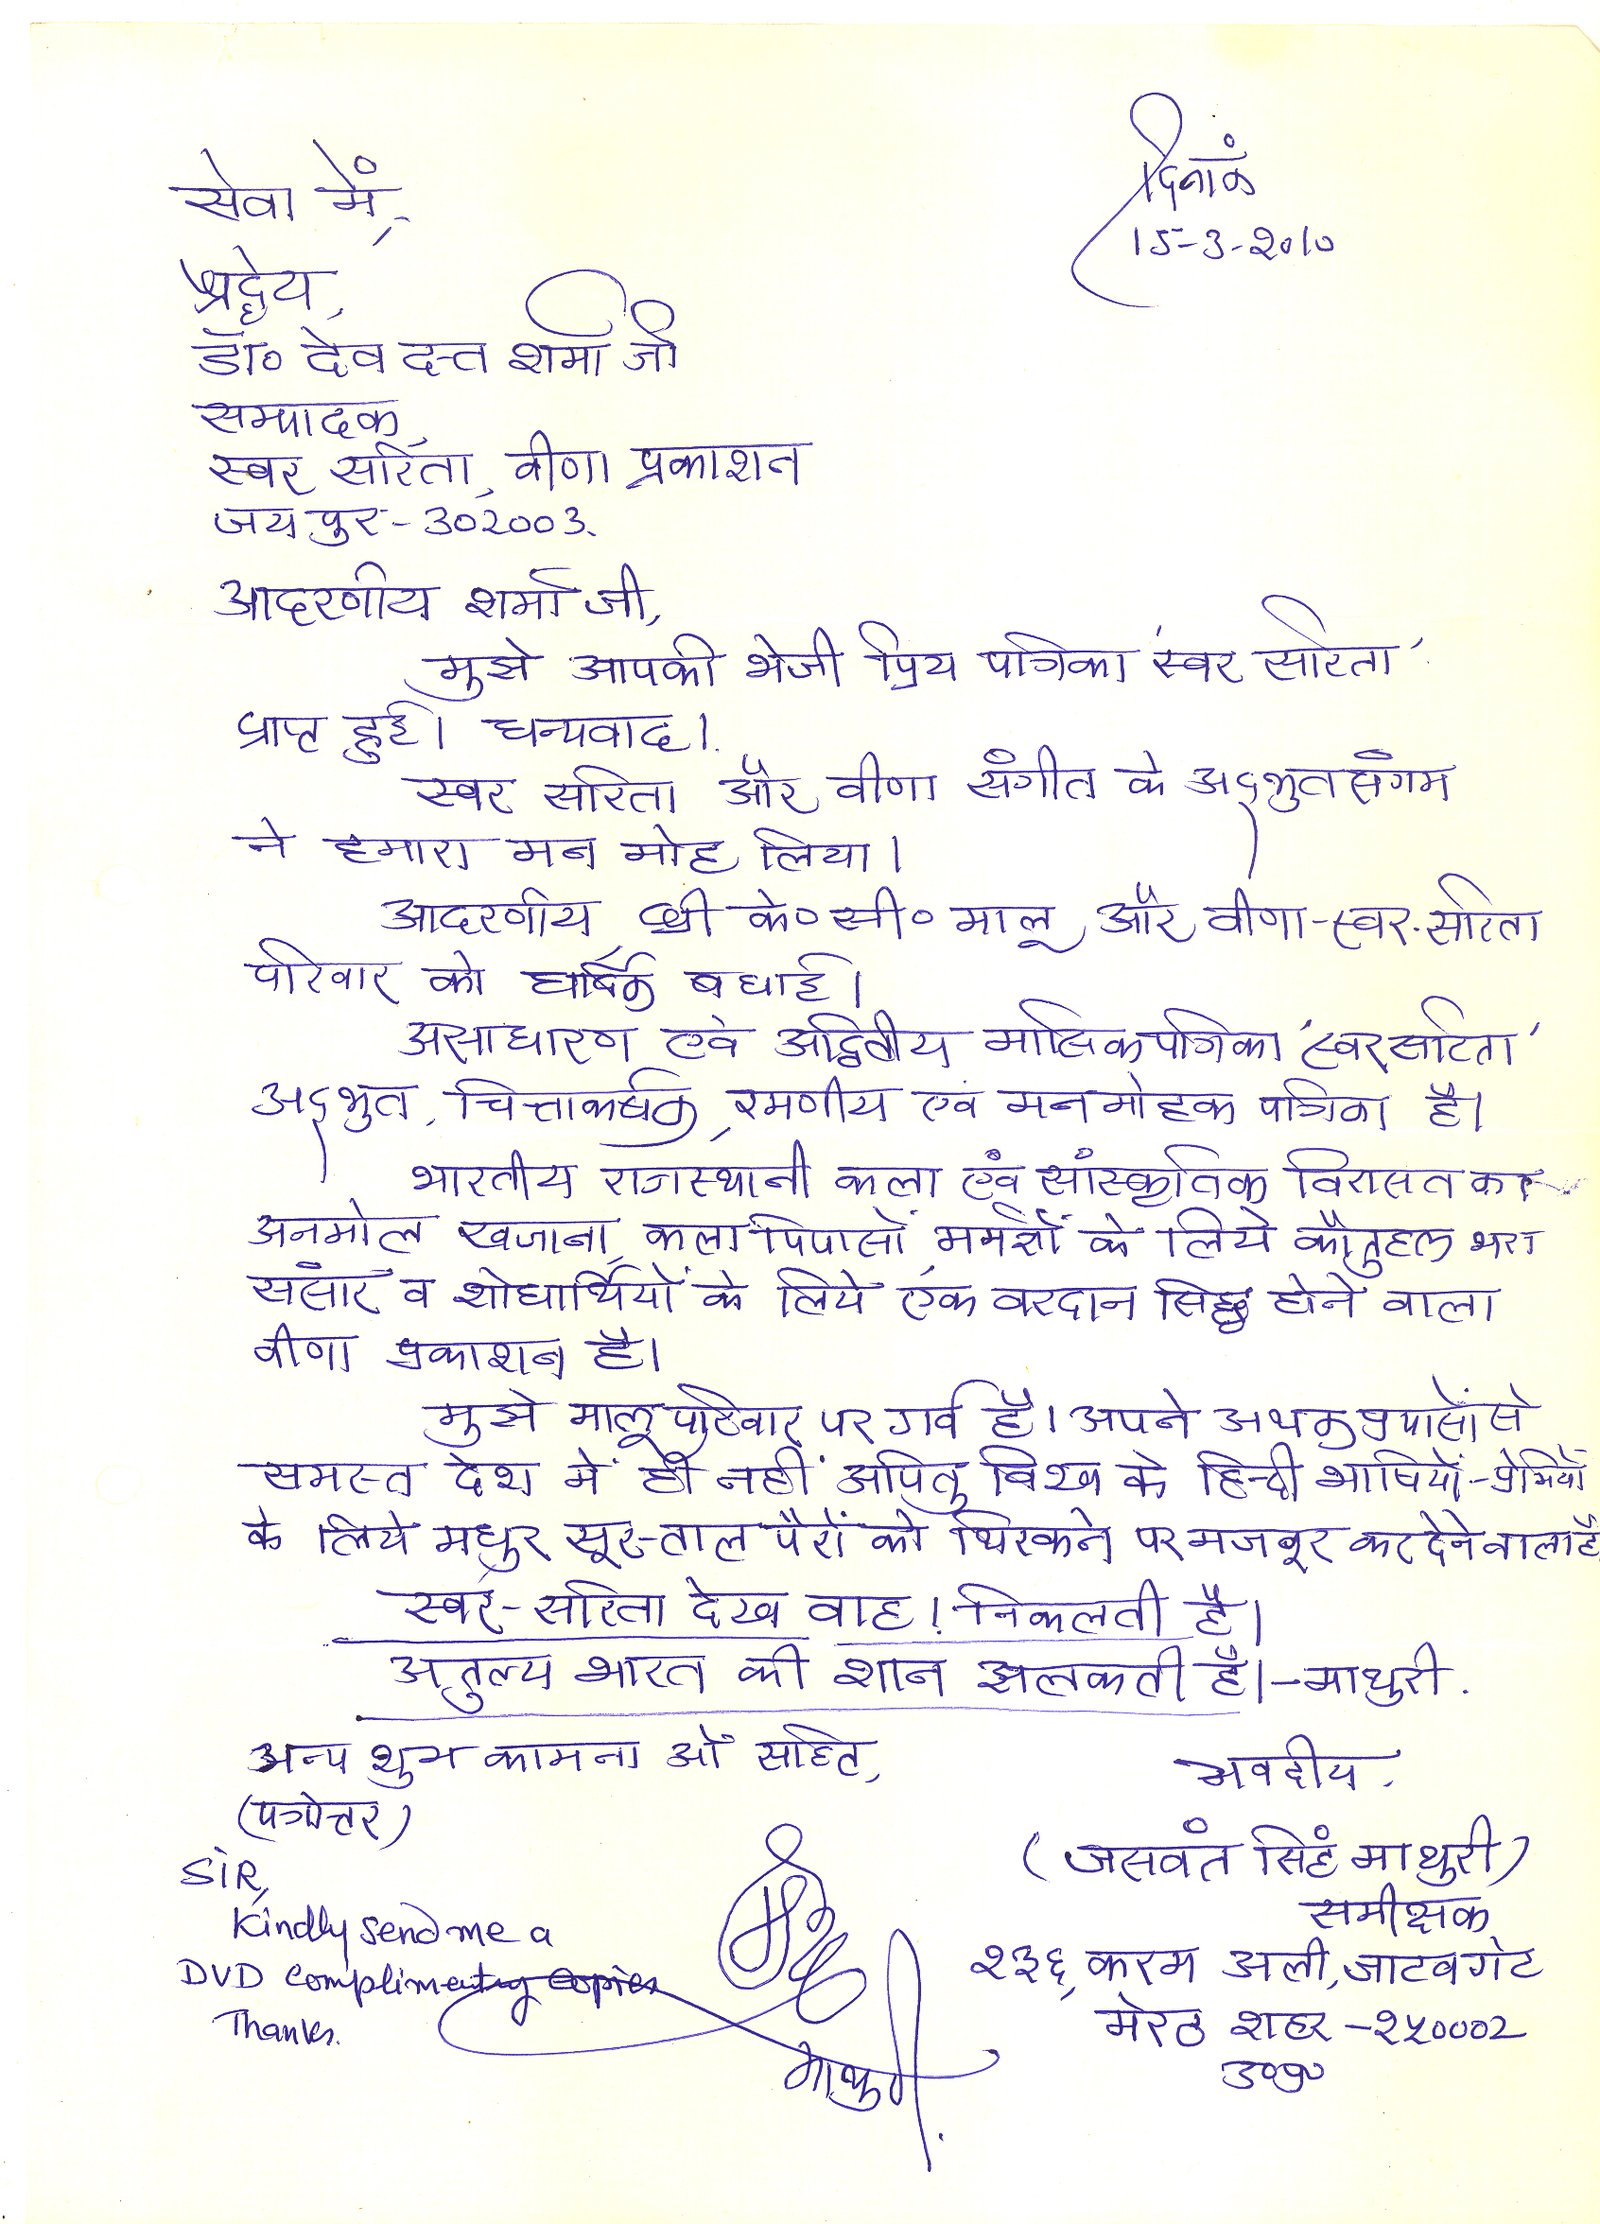 दिनांक
15-3-2010
सेवा में,
श्रद्धेय,
डॉ० देव दत्त शर्मा जी
सम्पादक,
स्वर सरिता, वीणा प्रकाशन
जयपुर-302003.
आदरणीय शर्मा जी,
मुझे आपकी भेजी प्रिय पत्रिका 'स्वर सरिता'
प्राप्त हुई। धन्यवाद।
स्वर सरिता और वीणा संगीत के अद्भुत संगम
ने हमारा मन मोह लिया।
आदरणीय श्री के०सी० मालू और वीणा-स्वर-सरिता
परिवार को हार्दिक बधाई।
असाधारण एवं अद्वितीय मासिक पत्रिका 'स्वर सरिता'
अद्भुत, चित्ताकर्षक, रमणीय एवं मनमोहक पत्रिका है।
भारतीय राजस्थानी कला एवं सांस्कृतिक विरासत का
अनमोल खजाना, कला पिपासों, मर्मज्ञों के लिये कौतुहल भरा
संसार व शोधार्थियों के लिये एक वरदान सिद्ध होने वाला
वीणा प्रकाशन है।
मुझे मालू परिवार पर गर्व है। अपने अथक प्रयासों से
समस्त देश में ही नहीं अपितु विश्व के हिन्दी भाषियों-प्रेमियों
के लिये मधुर सूर-ताल पैरों को थिरकने पर मजबूर कर देने वाला है
स्वर-सरिता देख वाह! निकलती है।
अतुल्य भारत की शान झलकती है।-माथुरी.
अन्य शुभ कामनाओं सहित,
(पत्रोत्तर)
भवदीय,
(जसवंत सिंह माथुरी)
समीक्षक
२३६, करम अली, जाटव गेट
मेरठ शहर-२५०००2
उ०प्र०
SIR,
Kindly send me a
DVD complimentry copies
Thanks.
माथुरी